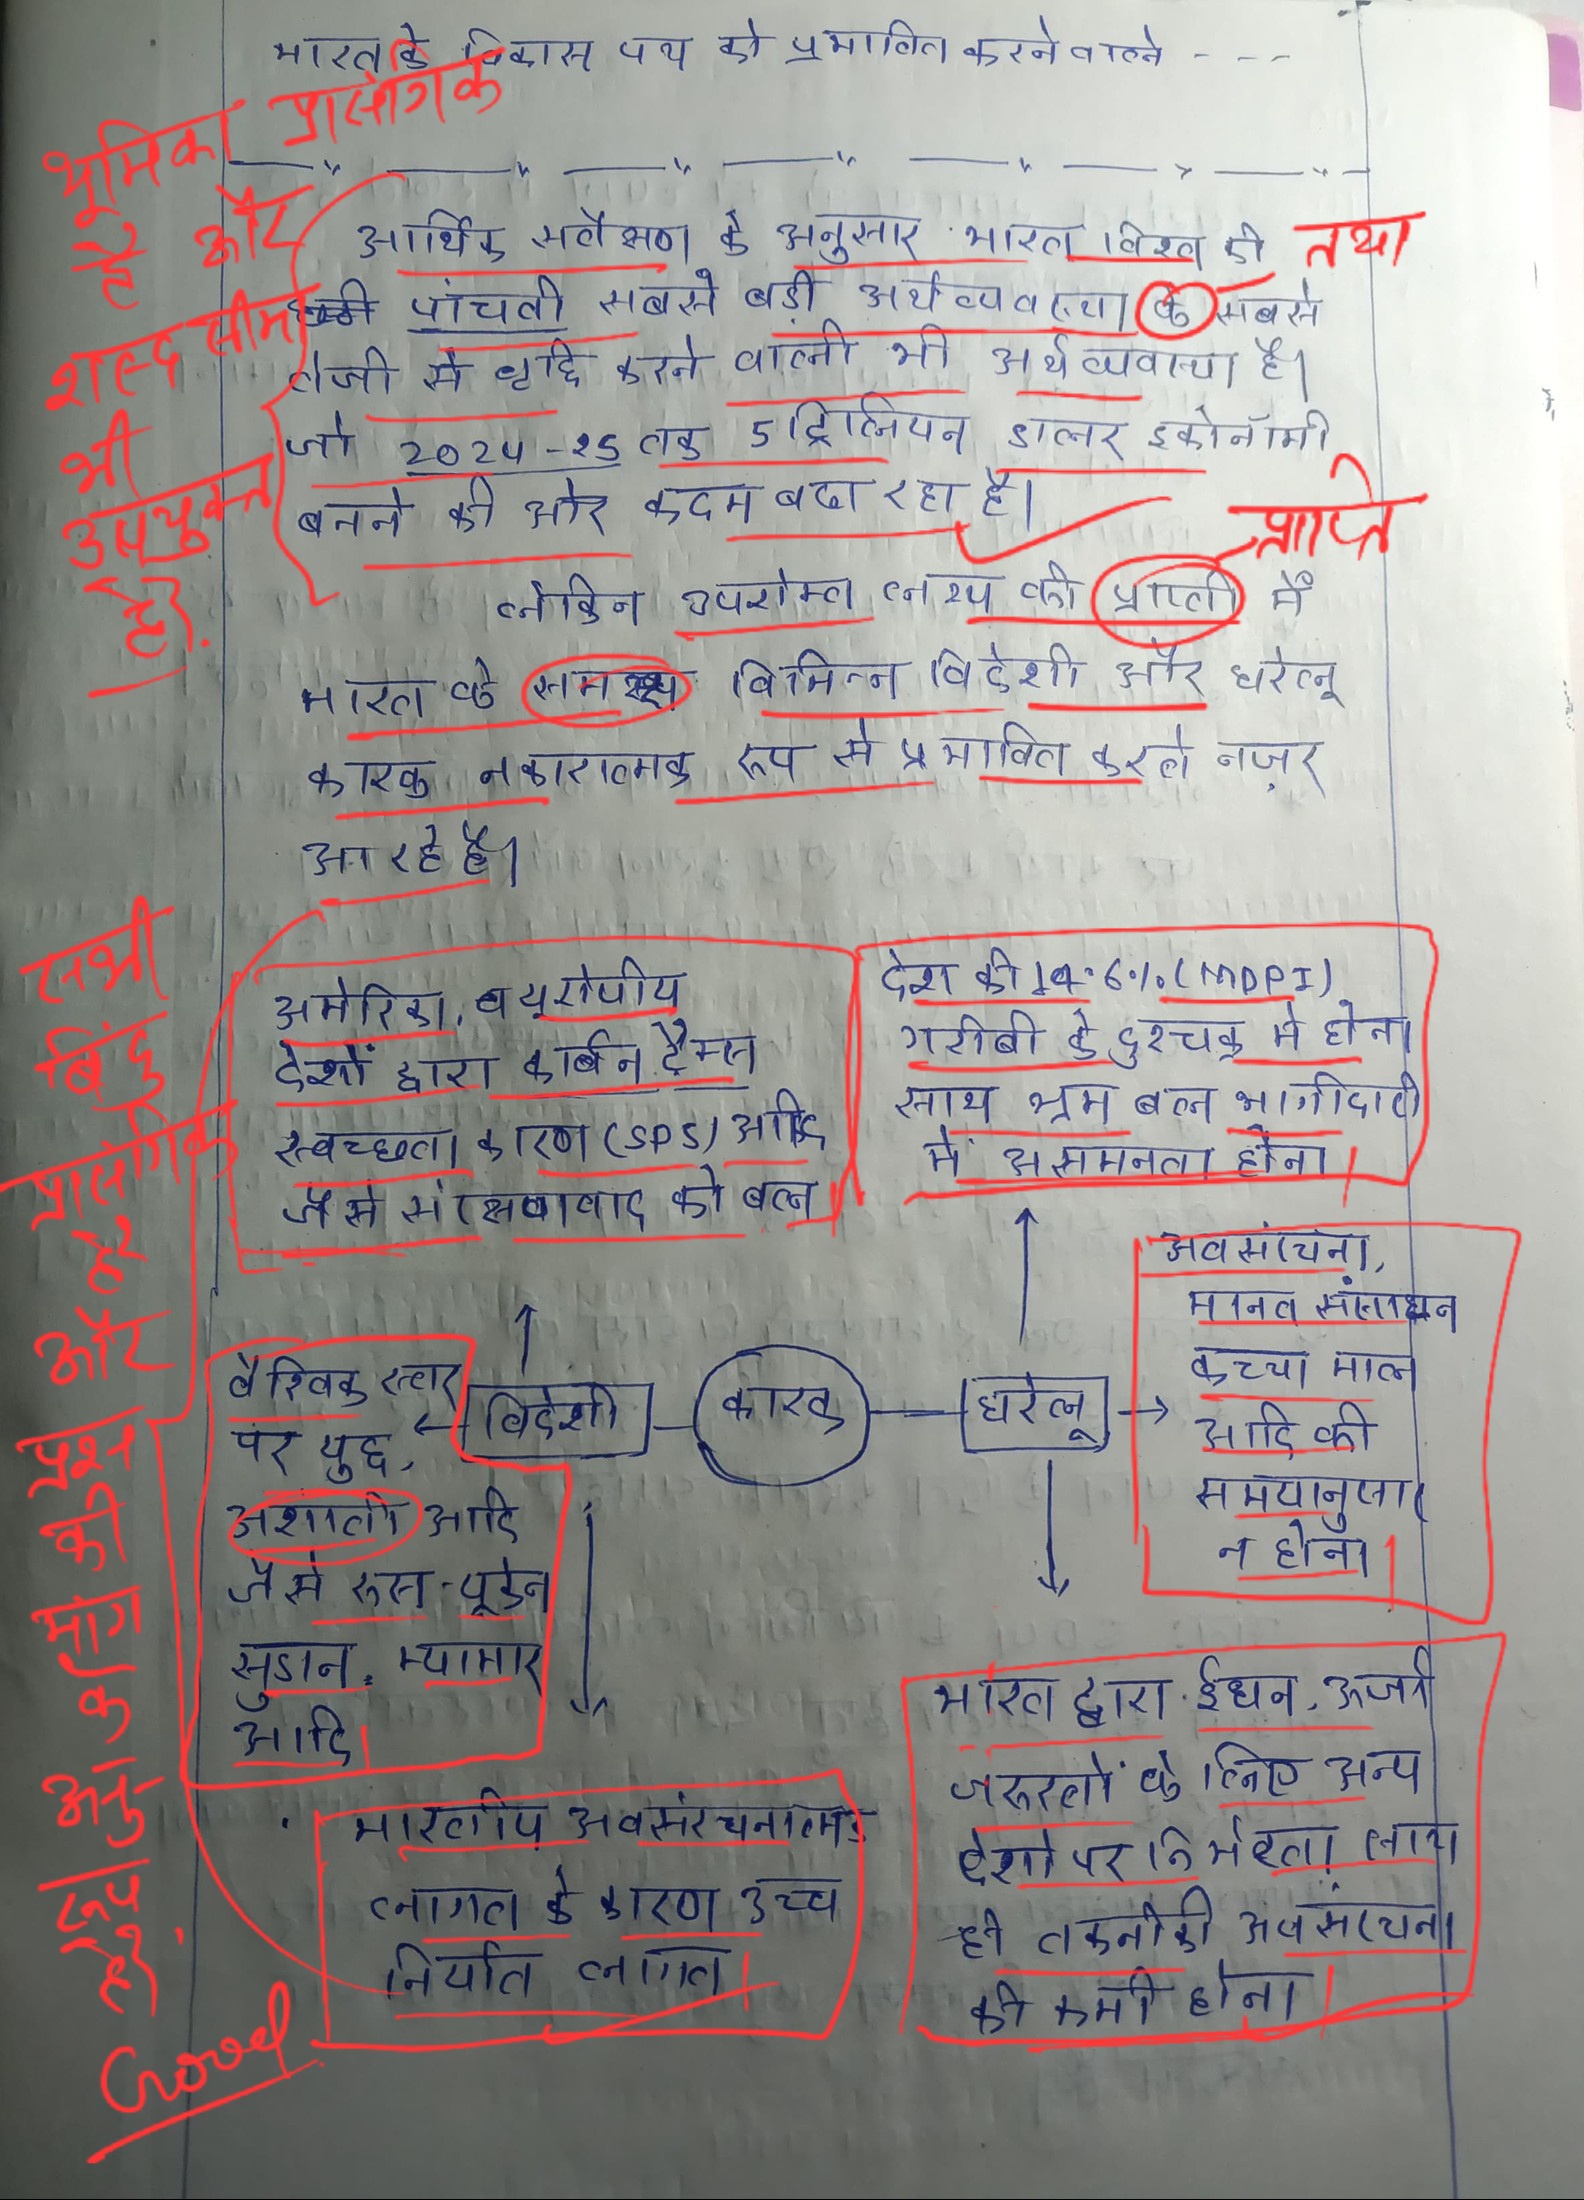 भारत के विकास पथ को प्रभावित करने वाले - - -
भूमिका प्रासंगिक
है और
शब्द सीमा
भी
उपयुक्त
है।
आर्थिक सर्वेक्षण के अनुसार भारत विश्व की
तथा
पांचवी सबसे बड़ी अर्थव्यवस्था के सबसे
तेजी से वृद्धि करने वाली भी अर्थव्यवस्था है।
जो 2024-25 तक 5 ट्रिलियन डालर इकोनॉमी
बनने की ओर कदम बढा रहा है।
प्राप्ति
लेकिन उपरोक्त लक्ष्य की प्राप्ती में
भारत के समक्ष विभिन्न विदेशी और घरेलू
कारक नकारात्मक रूप से प्रभावित करते नज़र
आ रहे है।
सभी
बिंदु
प्रासंगिक
है
और
प्रश्न
की
मांग
के
अनु-
रूप
है।
Good
अमेरिका, व यूरोपीय
देशों द्वारा कार्बन टैक्स
स्वच्छता कारण (SPS) आदि
जैसे संरक्षणवाद को बल।
देश की 14.6% (MDPI)
गरीबी के दुश्चक्र में होना
साथ श्रम बल भागीदारी
में असमनता होना।
अवसंरचना,
मानव संसाधन
कच्चा माल
आदि की
समयानुसार
न होना।
वैश्विक स्तर
पर युद्ध,
अशांती आदि
जैसे रूस-यूक्रेन
सुडान, म्यामार
आदि।
विदेशी
कारक
घरेलू
भारतीय अवसंरचनात्मक
लागत के कारण उच्च
निर्यात लागत।
भारत द्वारा ईंधन, ऊर्जा
जरूरतों के लिए अन्य
देशो पर निर्भरता, साथ
ही तकनीकी अवसंरचना
की कमी होना।